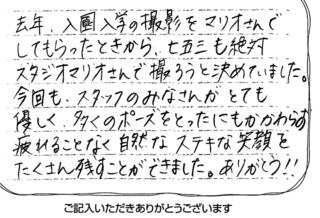 去年、入園入学の撮影をマリオさんで
してもらったときから、七五三も絶対
スタジオマリオさんで撮ろうと決めていました。
今回も、スタッフのみなさんがとても
優しく、多くのポーズをとったにもかかわらず
疲れることなく自然なステキな笑顔を
たくさん残すことができました。ありがとう!!
ご記入いただきありがとうございます